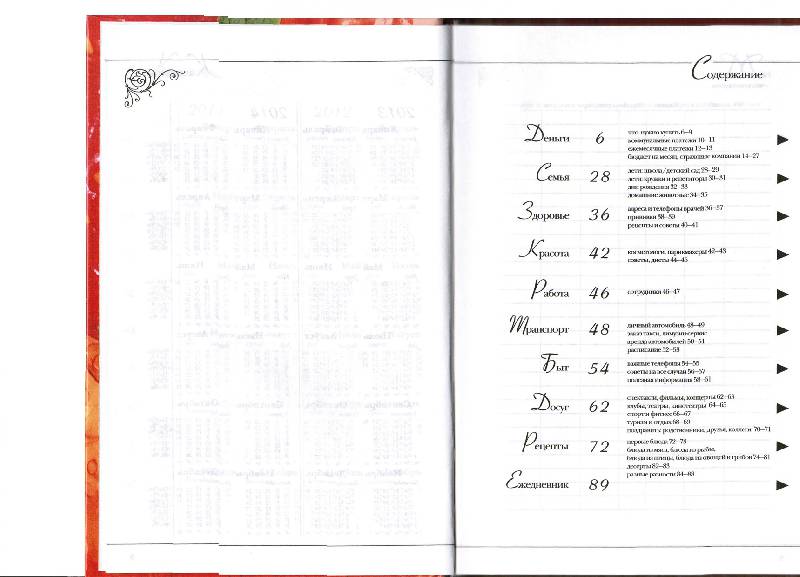 Содержание
Деньги 6
что нужно купить 6–9
коммунальные платежи 10–11
ежемесячные платежи 12–13
бюджет на месяц, страховые компании 14–27
Семья 28
дети: школа/детский сад 28–29
дети: кружки и репетиторы 30–31
дни рождения 32–33
домашние животные 34–35
Здоровье 36
адреса и телефоны врачей 36–37
прививки 38–39
рецепты и советы 40–41
Красота 42
косметологи, парикмахеры 42–43
советы, диеты 44–45
Работа 46
сотрудники 46–47
Транспорт 48
личный автомобиль 48–49
заказ такси, лимузин-сервис
аренда автомобилей 50–51
расписание 52–53
Быт 54
важные телефоны 54–55
советы на все случаи 56–57
полезная информация 58–61
Досуг 62
спектакли, фильмы, концерты 62–63
клубы, театры, кинотеатры 64–65
спорт и фитнес 66–67
туризм и отдых 68–69
поздравить: родственники, друзья, коллеги 70–71
Рецепты 72
первые блюда 72–73
блюда из мяса, блюда из рыбы,
блюда из птицы, блюда из овощей и грибов 74–81
десерты 82–83
разные разности 84–88
Ежедневник 89